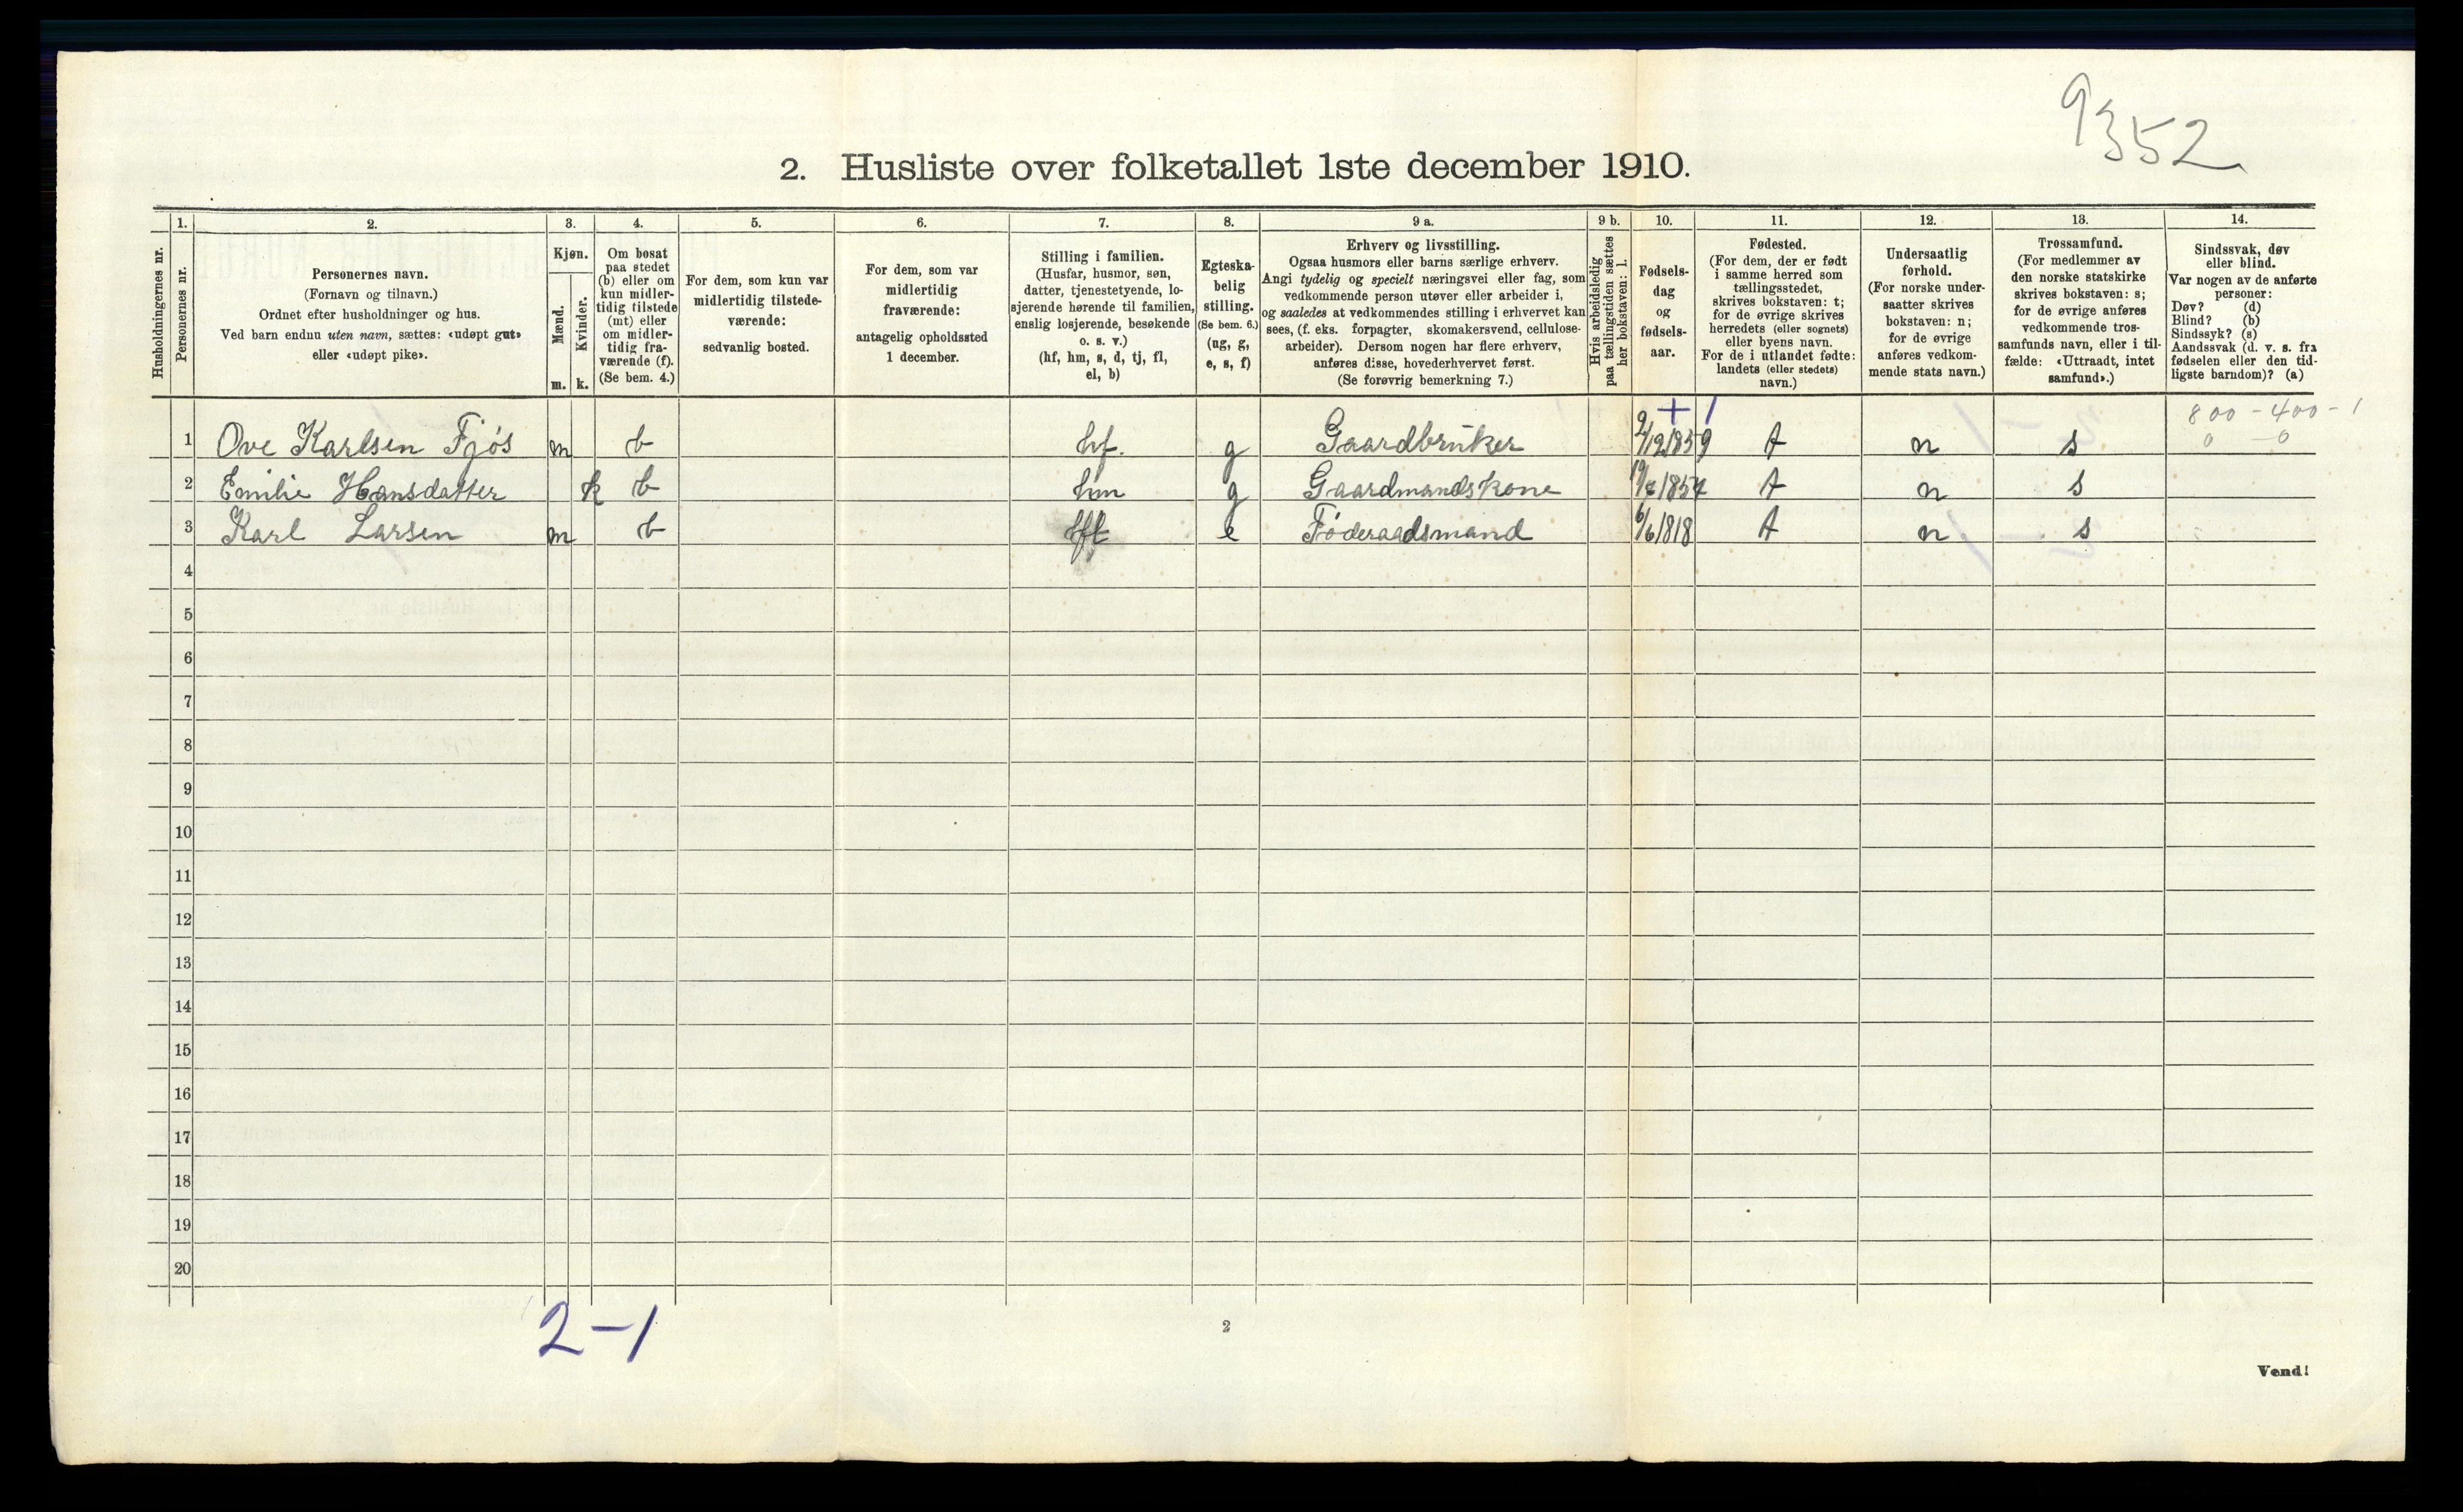 9352
2. Husliste over folketallet 1ste december 1910.
Husholdningernes nr.
1.
Personernes nr.
2.
Personernes navn.
(Fornavn og tilnavn.)
Ordnet efter husholdninger og hus.
Ved barn endnu uten navn, sættes: «udøpt gut»
eller «udøpt pike».
3.
Kjøn.
Mænd.
Kvinder.
m. k.
4.
Om bosat
paa stedet
(b) eller om
kun midler-
tidig tilstede
(mt) eller
om midler-
tidig fra-
værende (f).
(Se bem. 4.)
5.
For dem, som kun var
midlertidig tilstede-
værende:
sedvanlig bosted.
6.
For dem, som var
midlertidig
fraværende:
antagelig opholdssted
1 december.
7.
Stilling i familien.
(Husfar, husmor, søn,
datter, tjenestetyende, lo-
sjerende hørende til familien,
enslig losjerende, besøkende
o. s. v.)
(hf, hm, s, d, tj, fl,
el, b)
8.
Egteska-
belig
stilling.
(Se bem. 6.)
(ug, g,
e, s, f)
9 a.
Erhverv og livsstilling.
Ogsaa husmors eller barns særlige erhverv.
Angi tydelig og specielt næringsvei eller fag, som
vedkommende person utøver eller arbeider i,
og saaledes at vedkommendes stilling i erhvervet kan
sees, (f. eks. forpagter, skomakersvend, cellulose-
arbeider). Dersom nogen har flere erhverv,
anføres disse, hovederhvervet først.
(Se forøvrig bemerkning 7.)
9 b.
Hvis arbeidsledig
paa tællingstiden sættes
her bokstaven: l.
10.
Fødsels-
dag
og
fødsels-
aar.
11.
Fødested.
(For dem, der er født
i samme herred som
tællingsstedet,
skrives bokstaven: t;
for de øvrige skrives
herredets (eller sognets)
eller byens navn.
For de i utlandet fødte:
landets (eller stedets)
navn.)
12.
Undersaatlig
forhold.
(For norske under-
saatter skrives
bokstaven: n;
for de øvrige
anføres vedkom-
mende stats navn.)
13.
Trossamfund.
(For medlemmer av
den norske statskirke
skrives bokstaven: s;
for de øvrige anføres
vedkommende tros-
samfunds navn, eller i til-
fælde: «Uttraadt, intet
samfund».)
14.
Sindssvak, døv
eller blind.
Var nogen av de anførte
personer:
Døv? (d)
Blind? (b)
Sindssyk? (s)
Aandssvak (d. v. s. fra
fødselen eller den tid-
ligste barndom)? (a)
+ 1
800 - 400 - 1
0 - 0
1 Ove Karlsen Fjøs m b hf. g Gaardbruker 2/12 1859 t n s
2 Emilie Hansdatter k b hm g Gaardmandskone t n s
3 Karl Larsen m b e Føderaadsmand 6/6 1818 t n s
4
5
6
7
8
9
10
11
12
13
14
15
16
17
18
19
20
2-1
2
Vend!